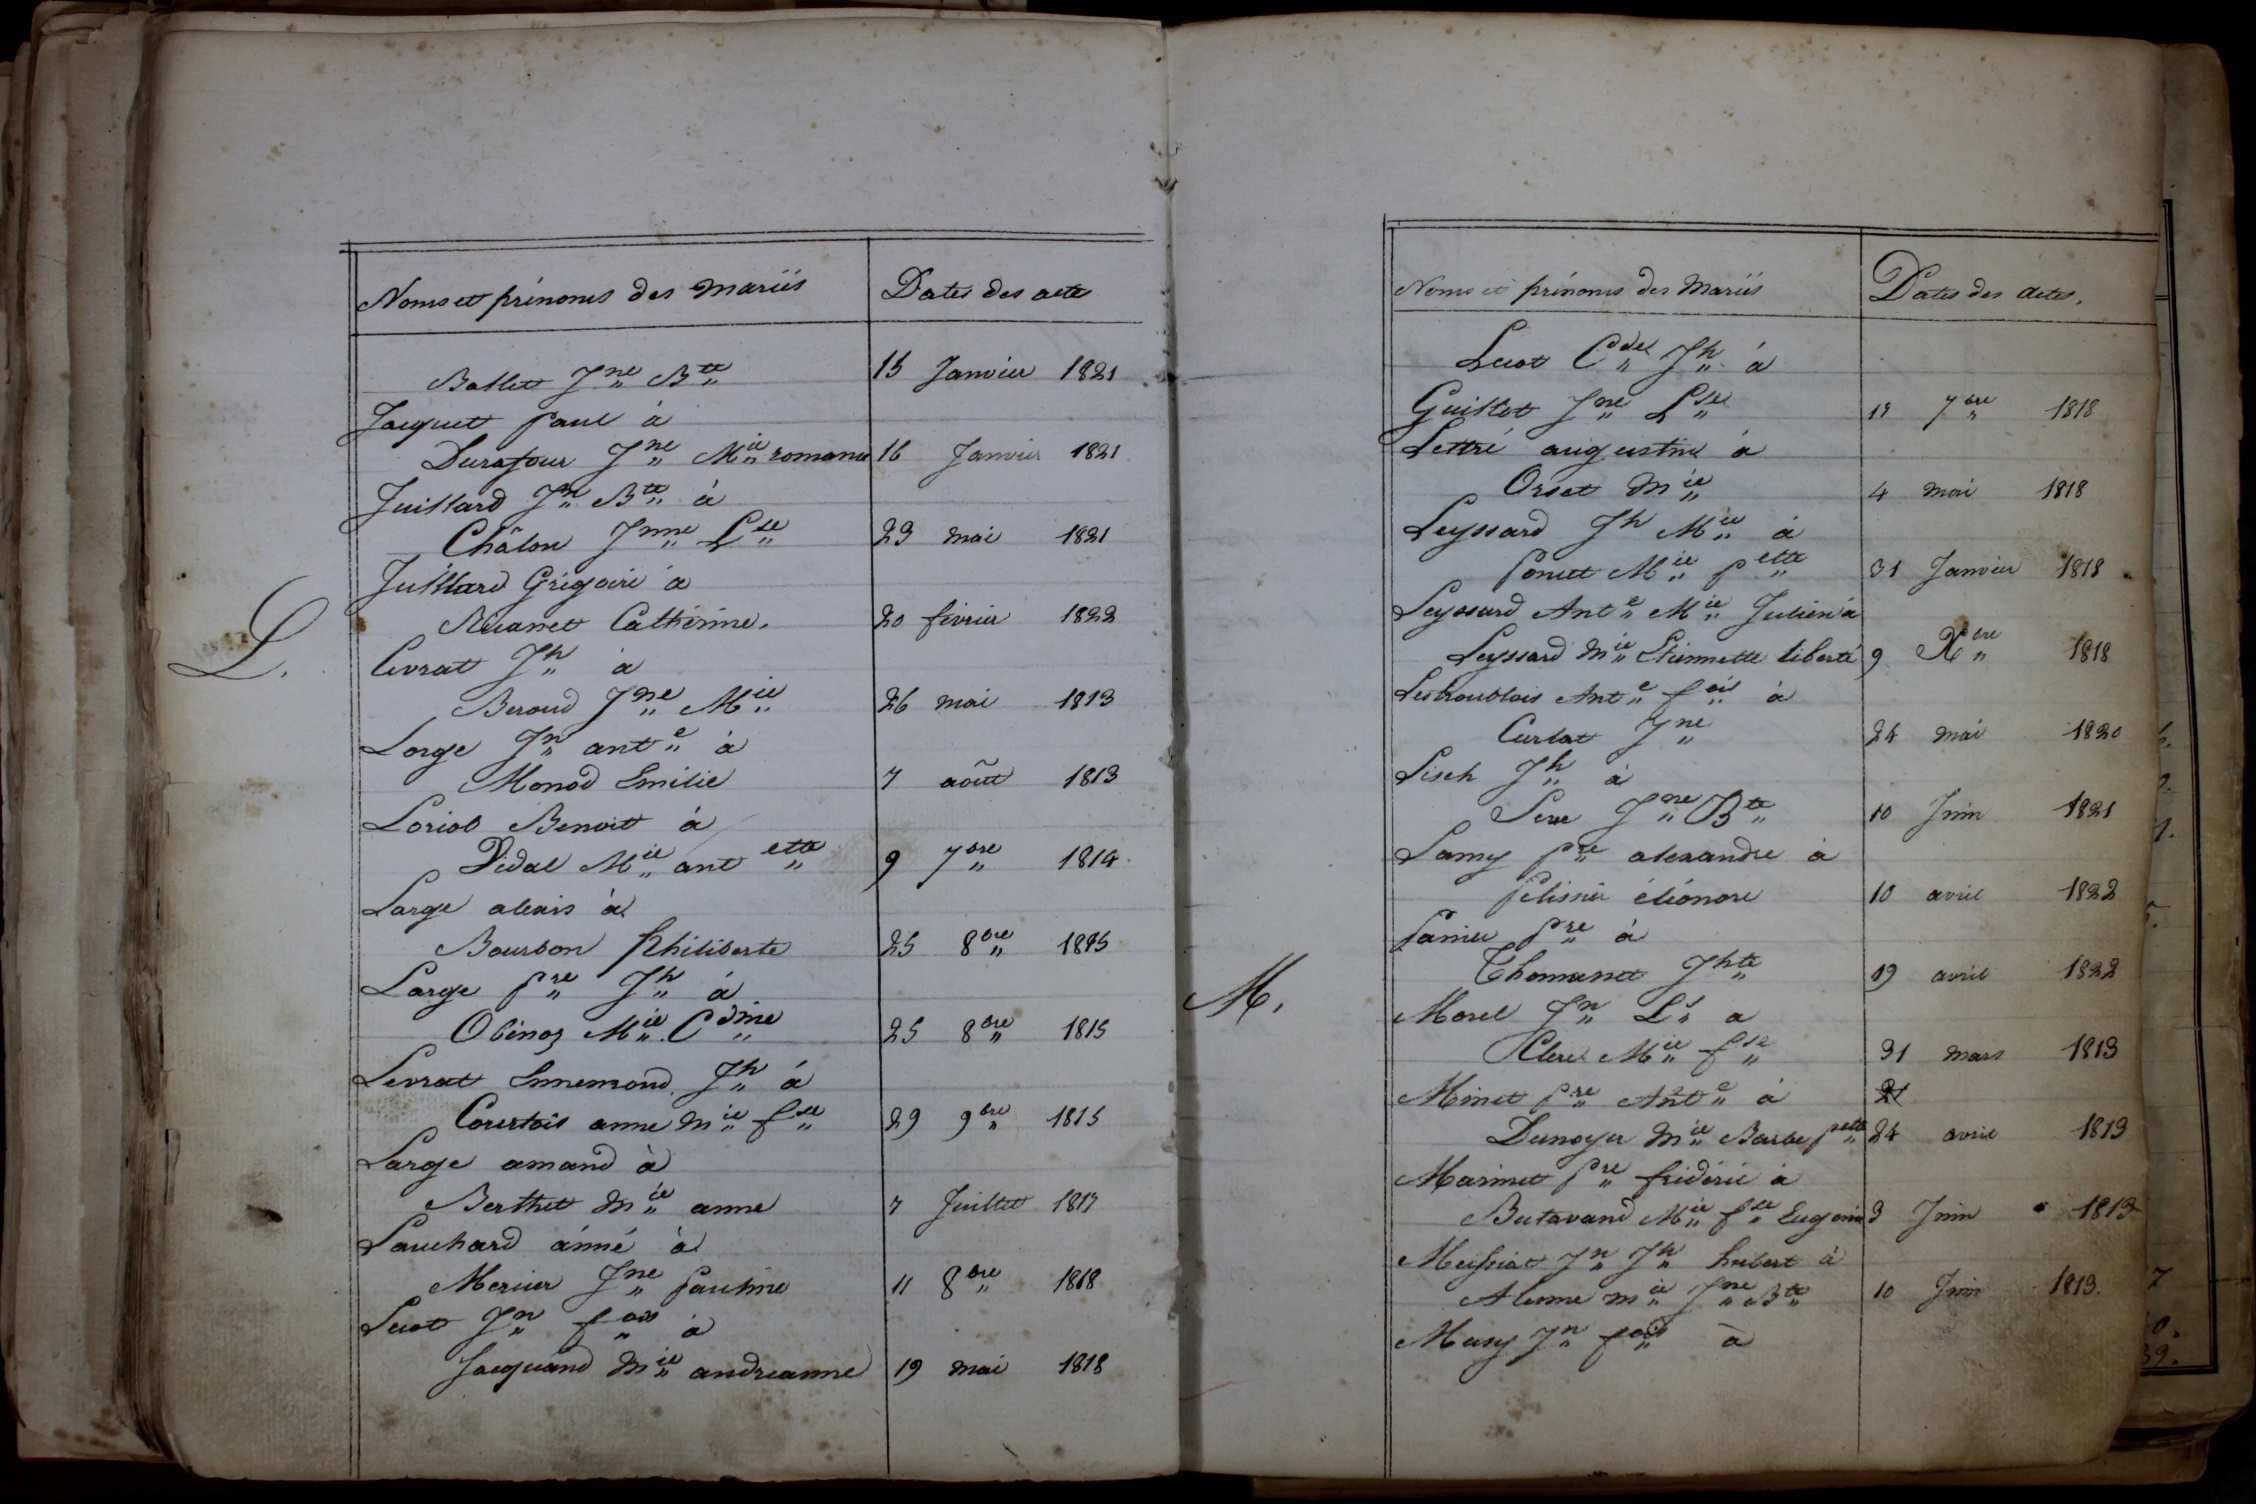 Noms et prénoms des mariés Dates des acte
Ballet Jne Btte 15 Janvier 1821
Jacquet Paul à
Durafour Jne Mie romane 16 Janvier 1821
Juillard Jn Bte à
Châlon Jnne Lse 23 mai 1821
Juillard Grégoire à
Ruanet Catherine. 20 février 1822
L.
Levrat Jh à
Beroud Jne Mie 26 mai 1813
Lorge Jn ante à
Monod Emilie 7 août 1813
Loriol Benoit à
Vidal Mie antette 9 7bre 1814
Large alexis à
Bourbon Philiberte 25 8bre 1815
Large Pre Jh à
Obénoz Mie Cdine 25 8bre 1815
Levrat Ennemond Jh à
Courtois anne Mie fse 29 9bre 1815
Large amand à
Berthet Mie anne 7 Juillet 1817
Lauchard aimé à
Mercier Jne Pauline 11 8bre 1818
Luot Jn fois à
Jacquand Mie andreanne 19 mai 1818
Noms et prénoms des Mariés Dates des actes.
Luot Cde Jh à
Guillot Jne Lse 7bre 1818
Lettré augustin à
Orset Mie 4 mai 1818
Leyssard Jh Mie à
Ponet Mie pette 31 Janvier 1818
Leyssard Ante Mie Julien à
Leyssard Mie Etiennette liberté 9 Xbre 1818
Lestroublois Ante fois à
Curlat Jne 24 mai 1820
Lisch Jh à
Serve Jne Bte 10 Juin 1821
Lamy Pre alexandre à
Pelissié éléonore 10 avril 1822
Lanier Pre à
Thomanet Jhte 19 avril 1822
M.
Morel Jn Ls a
Clerc Mie fse 31 mars 1813
Minet Pre Ante à 21
Dunoyer Mie Barbe pette 24 avril 1813
Marinet Pre frédéric à
Butavand Mie fse Eugenie 3 Juin 1813
Messiat Jn Jh hubert à
Alenne Mie Jne Bte 10 Juin 1813.
Musy Jn fois à